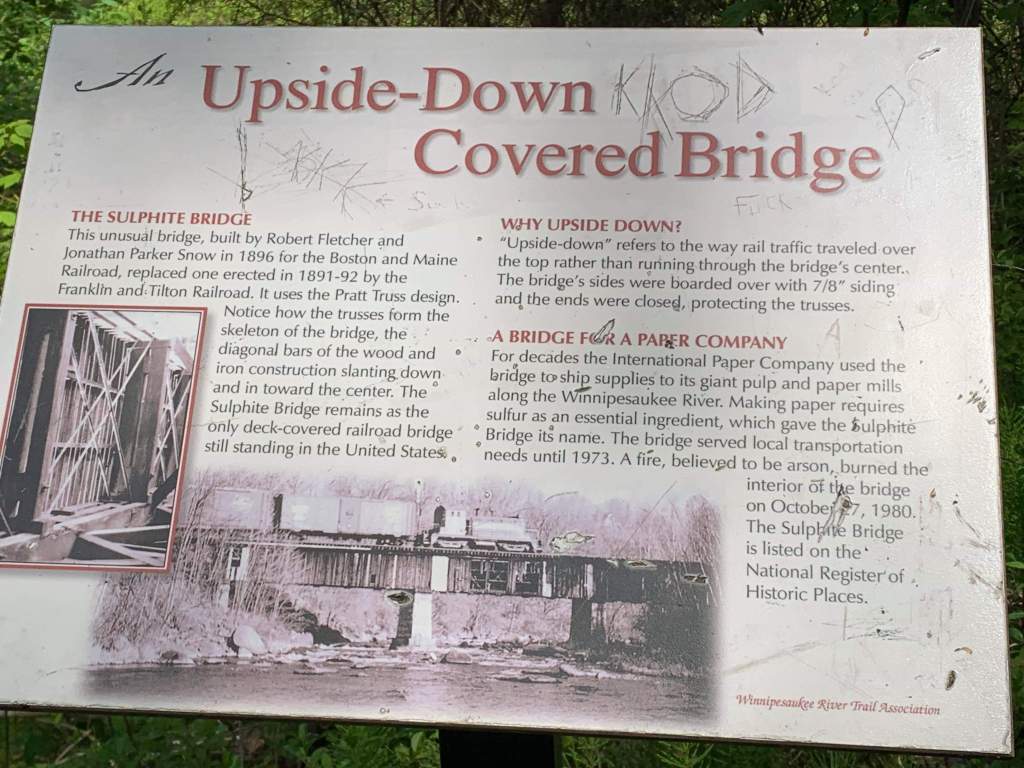 An Upside-Down
Covered Bridge
THE SULPHITE BRIDGE
This unusual bridge, built by Robert Fletcher and
Jonathan Parker Snow in 1896 for the Boston and Maine
Railroad, replaced one erected in 1891-92 by the
Franklin and Tilton Railroad. It uses the Pratt Truss design.
Notice how the trusses form the
skeleton of the bridge, the
diagonal bars of the wood and
iron construction slanting down
and in toward the center. The
Sulphite Bridge remains as the
only deck-covered railroad bridge
still standing in the United States.
WHY UPSIDE DOWN?
"Upside-down" refers to the way rail traffic traveled over
the top rather than running through the bridge's center.
The bridge's sides were boarded over with 7/8" siding
and the ends were closed, protecting the trusses.
A BRIDGE FOR A PAPER COMPANY
For decades the International Paper Company used the
bridge to ship supplies to its giant pulp and paper mills
along the Winnipesaukee River. Making paper requires
sulfur as an essential ingredient, which gave the Sulphite
Bridge its name. The bridge served local transportation
needs until 1973. A fire, believed to be arson, burned the
interior of the bridge
on October 7, 1980.
The Sulphite Bridge
is listed on the
National Register of
Historic Places.
Winnipesaukee River Trail Association